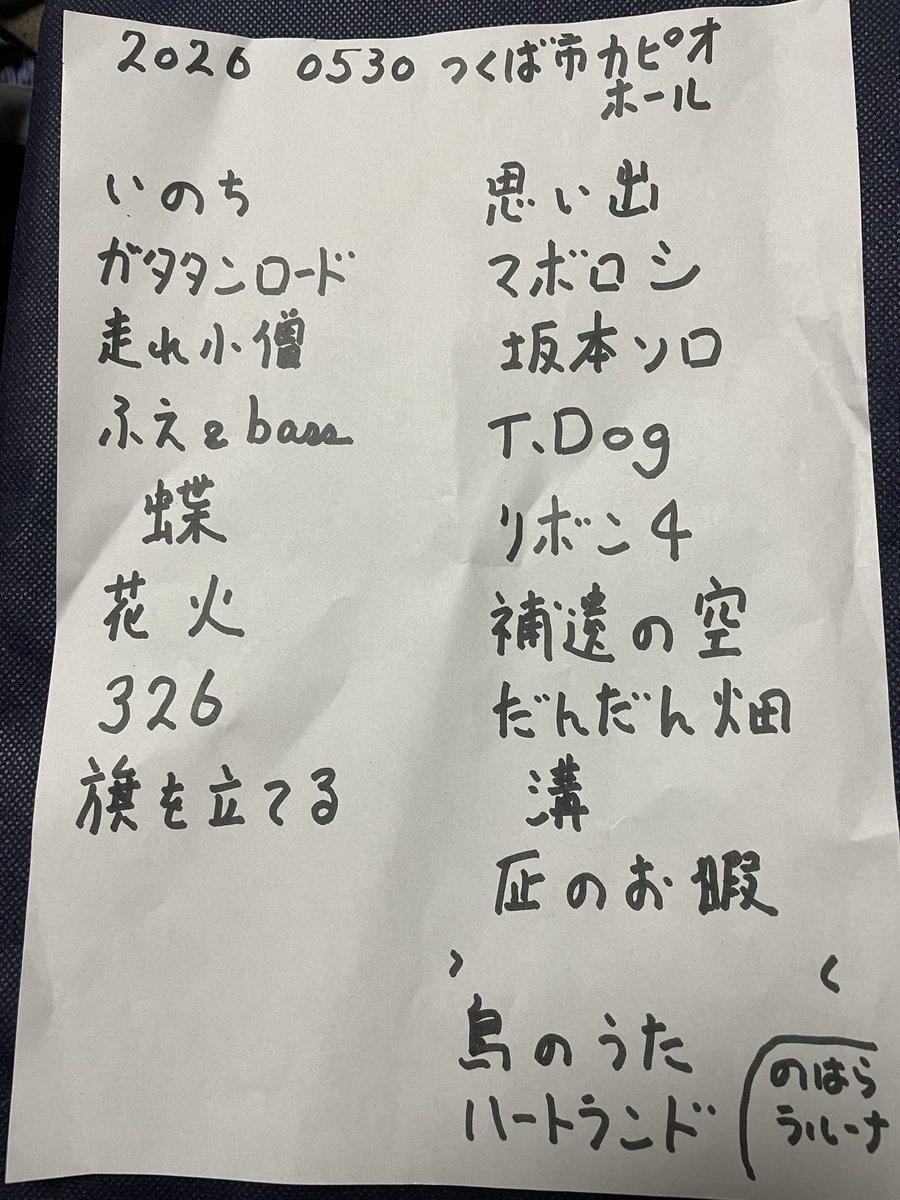 2026 0530 つくば市カピオ
ホール
いのち
ガタタンロード
走れ小僧
ふえとbass
蝶
花火
326
旗を立てる
思い出
マボロシ
坂本ソロ
T.Dog
リボン4
補遺の空
だんだん畑
溝
凪のお暇
鳥のうた
ハートランド
のはら
ラルーナ